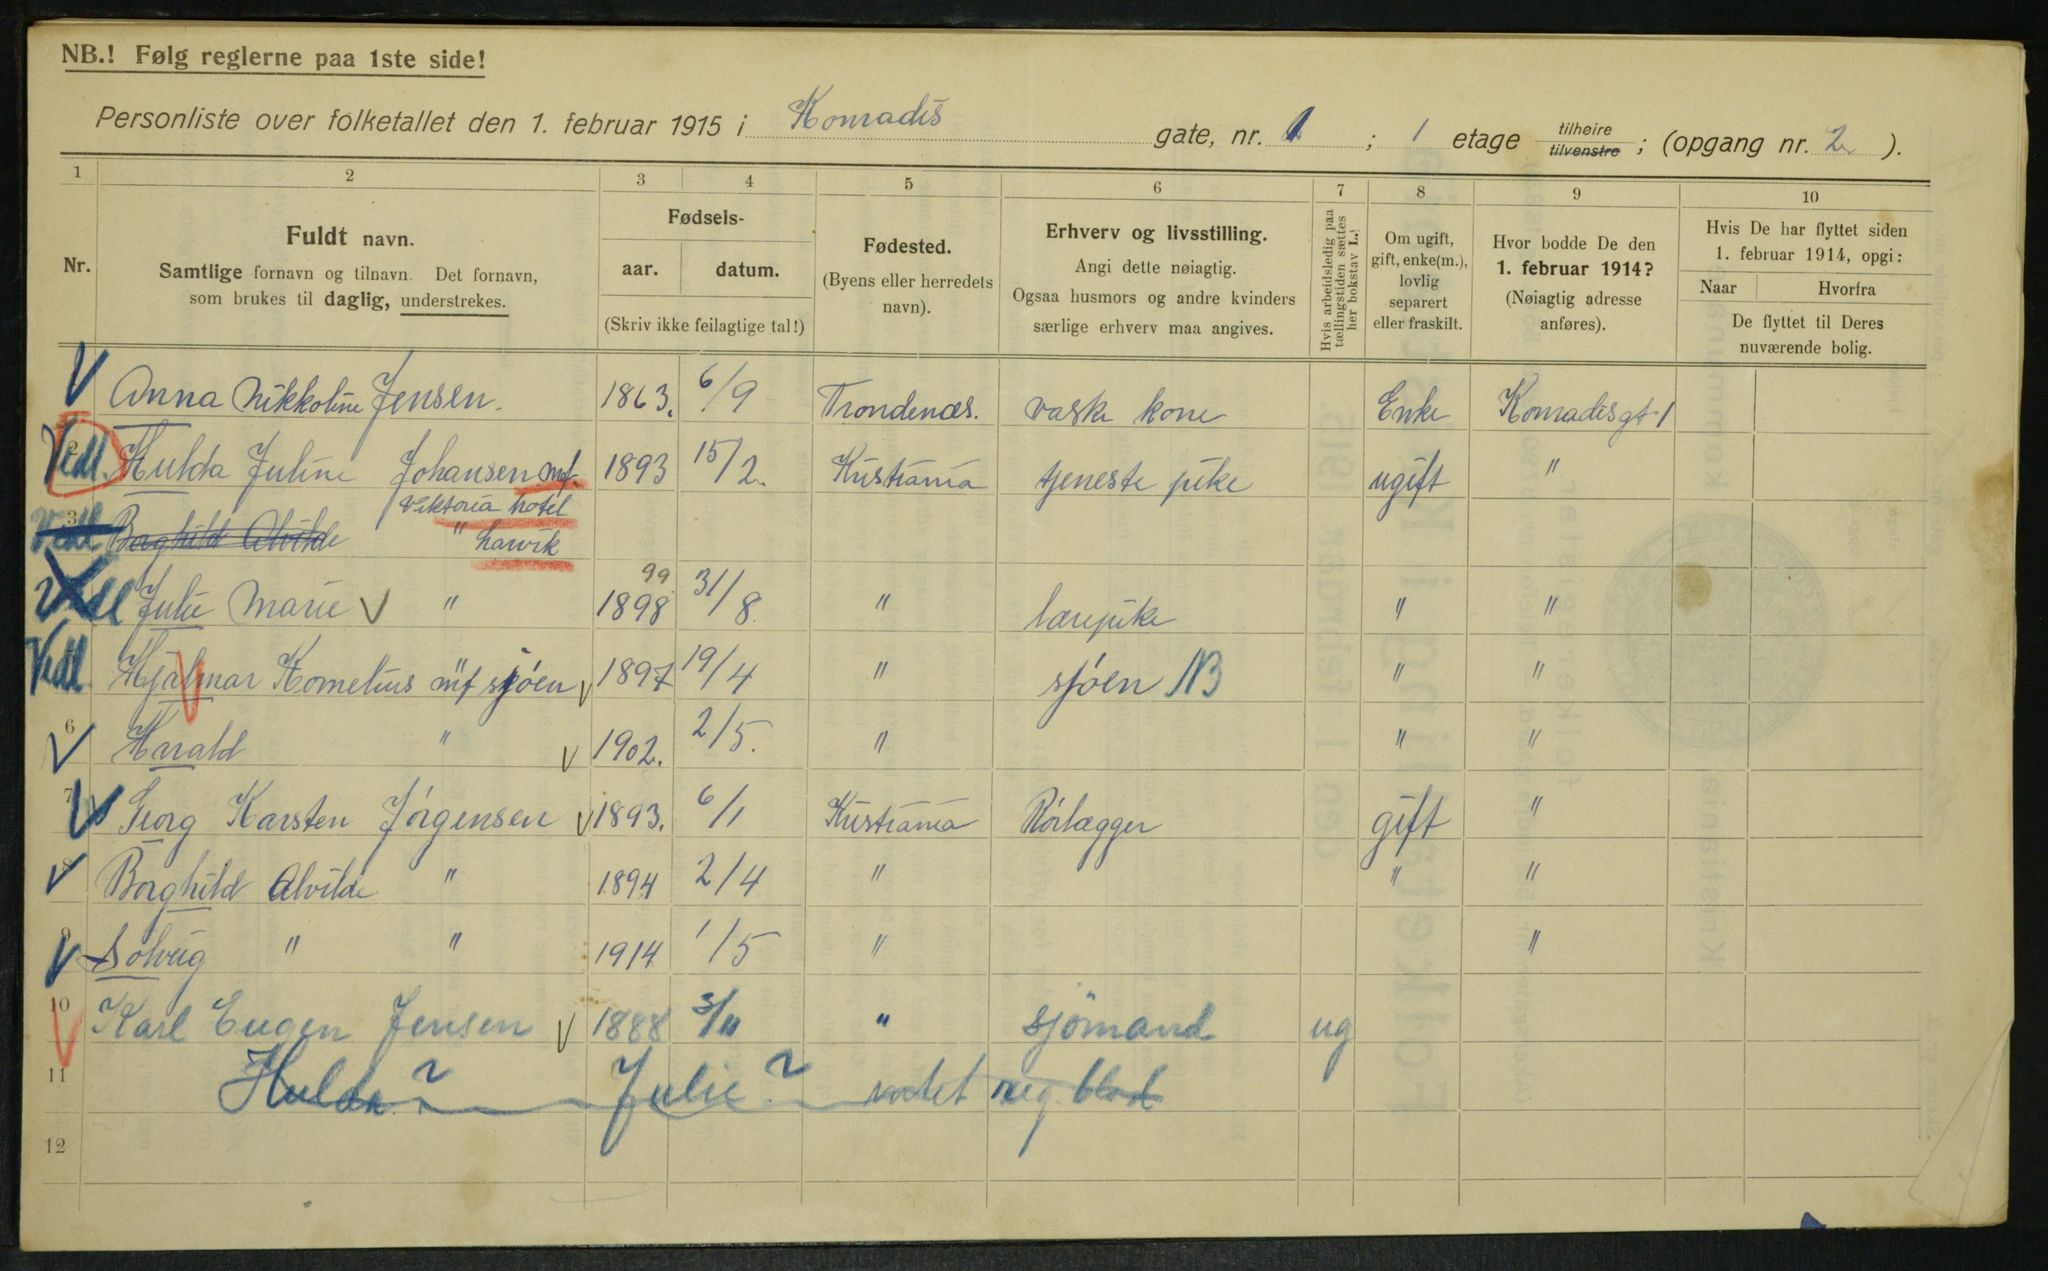 NB.! Følg reglerne paa 1ste side!
Personliste over folketallet den 1. februar 1915 i Konradis gate, nr. 1 ; 1 etage tilhøire tilvenstre ; (opgang nr. 2 ).
1 2 3 4 5 6 7 8 9 10
Nr.
Fuldt navn.
Samtlige fornavn og tilnavn. Det fornavn,
som brukes til daglig, understrekes.
Fødsels-
aar. datum.
(Skriv ikke feilagtige tal!)
Fødested.
(Byens eller herredets
navn).
Erhverv og livsstilling.
Angi dette nøiagtig.
Ogsaa husmors og andre kvinders
særlige erhverv maa angives.
Hvis arbeidsledig paa
tællingstiden sættes
her bokstav L.!
Om ugift,
gift, enke(m.),
lovlig
separert
eller fraskilt.
Hvor bodde De den
1. februar 1914?
(Nøiagtig adresse
anføres).
Hvis De har flyttet siden
1. februar 1914, opgi:
Naar Hvorfra
De flyttet til Deres
nuværende bolig.
Anna Nikkoline Jensen. 1863. 6/9 Trondenæs. vaske kone Enke Konradisgt 1
2 Vedl. Hulda Juline Johansen mf. 1893 15/2. Kristiania tjeneste pike ugift "
Viktoria hotel
3 Vedl Borghild Alvilde " Larvik
99
Vedl Julie Marie " 1898 31/8. " lærepike " "
Vedl. Hjalmar Kornelius mf sjøen 1897 19/4 " sjøen NB " "
6 Harald " 1902. 2/5. " " "
7 Georg Karsten Jørgensen 1893. 6/1 Kristiania Rørlægger gift "
8 Borghild Alvilde " 1894 2/4 " " "
9 Solveig " " 1914 1/5 " "
10 Karl Eugen Jensen 1888 3/11 " sjømand ug
11 Hulda? Julie? reg. blad
12